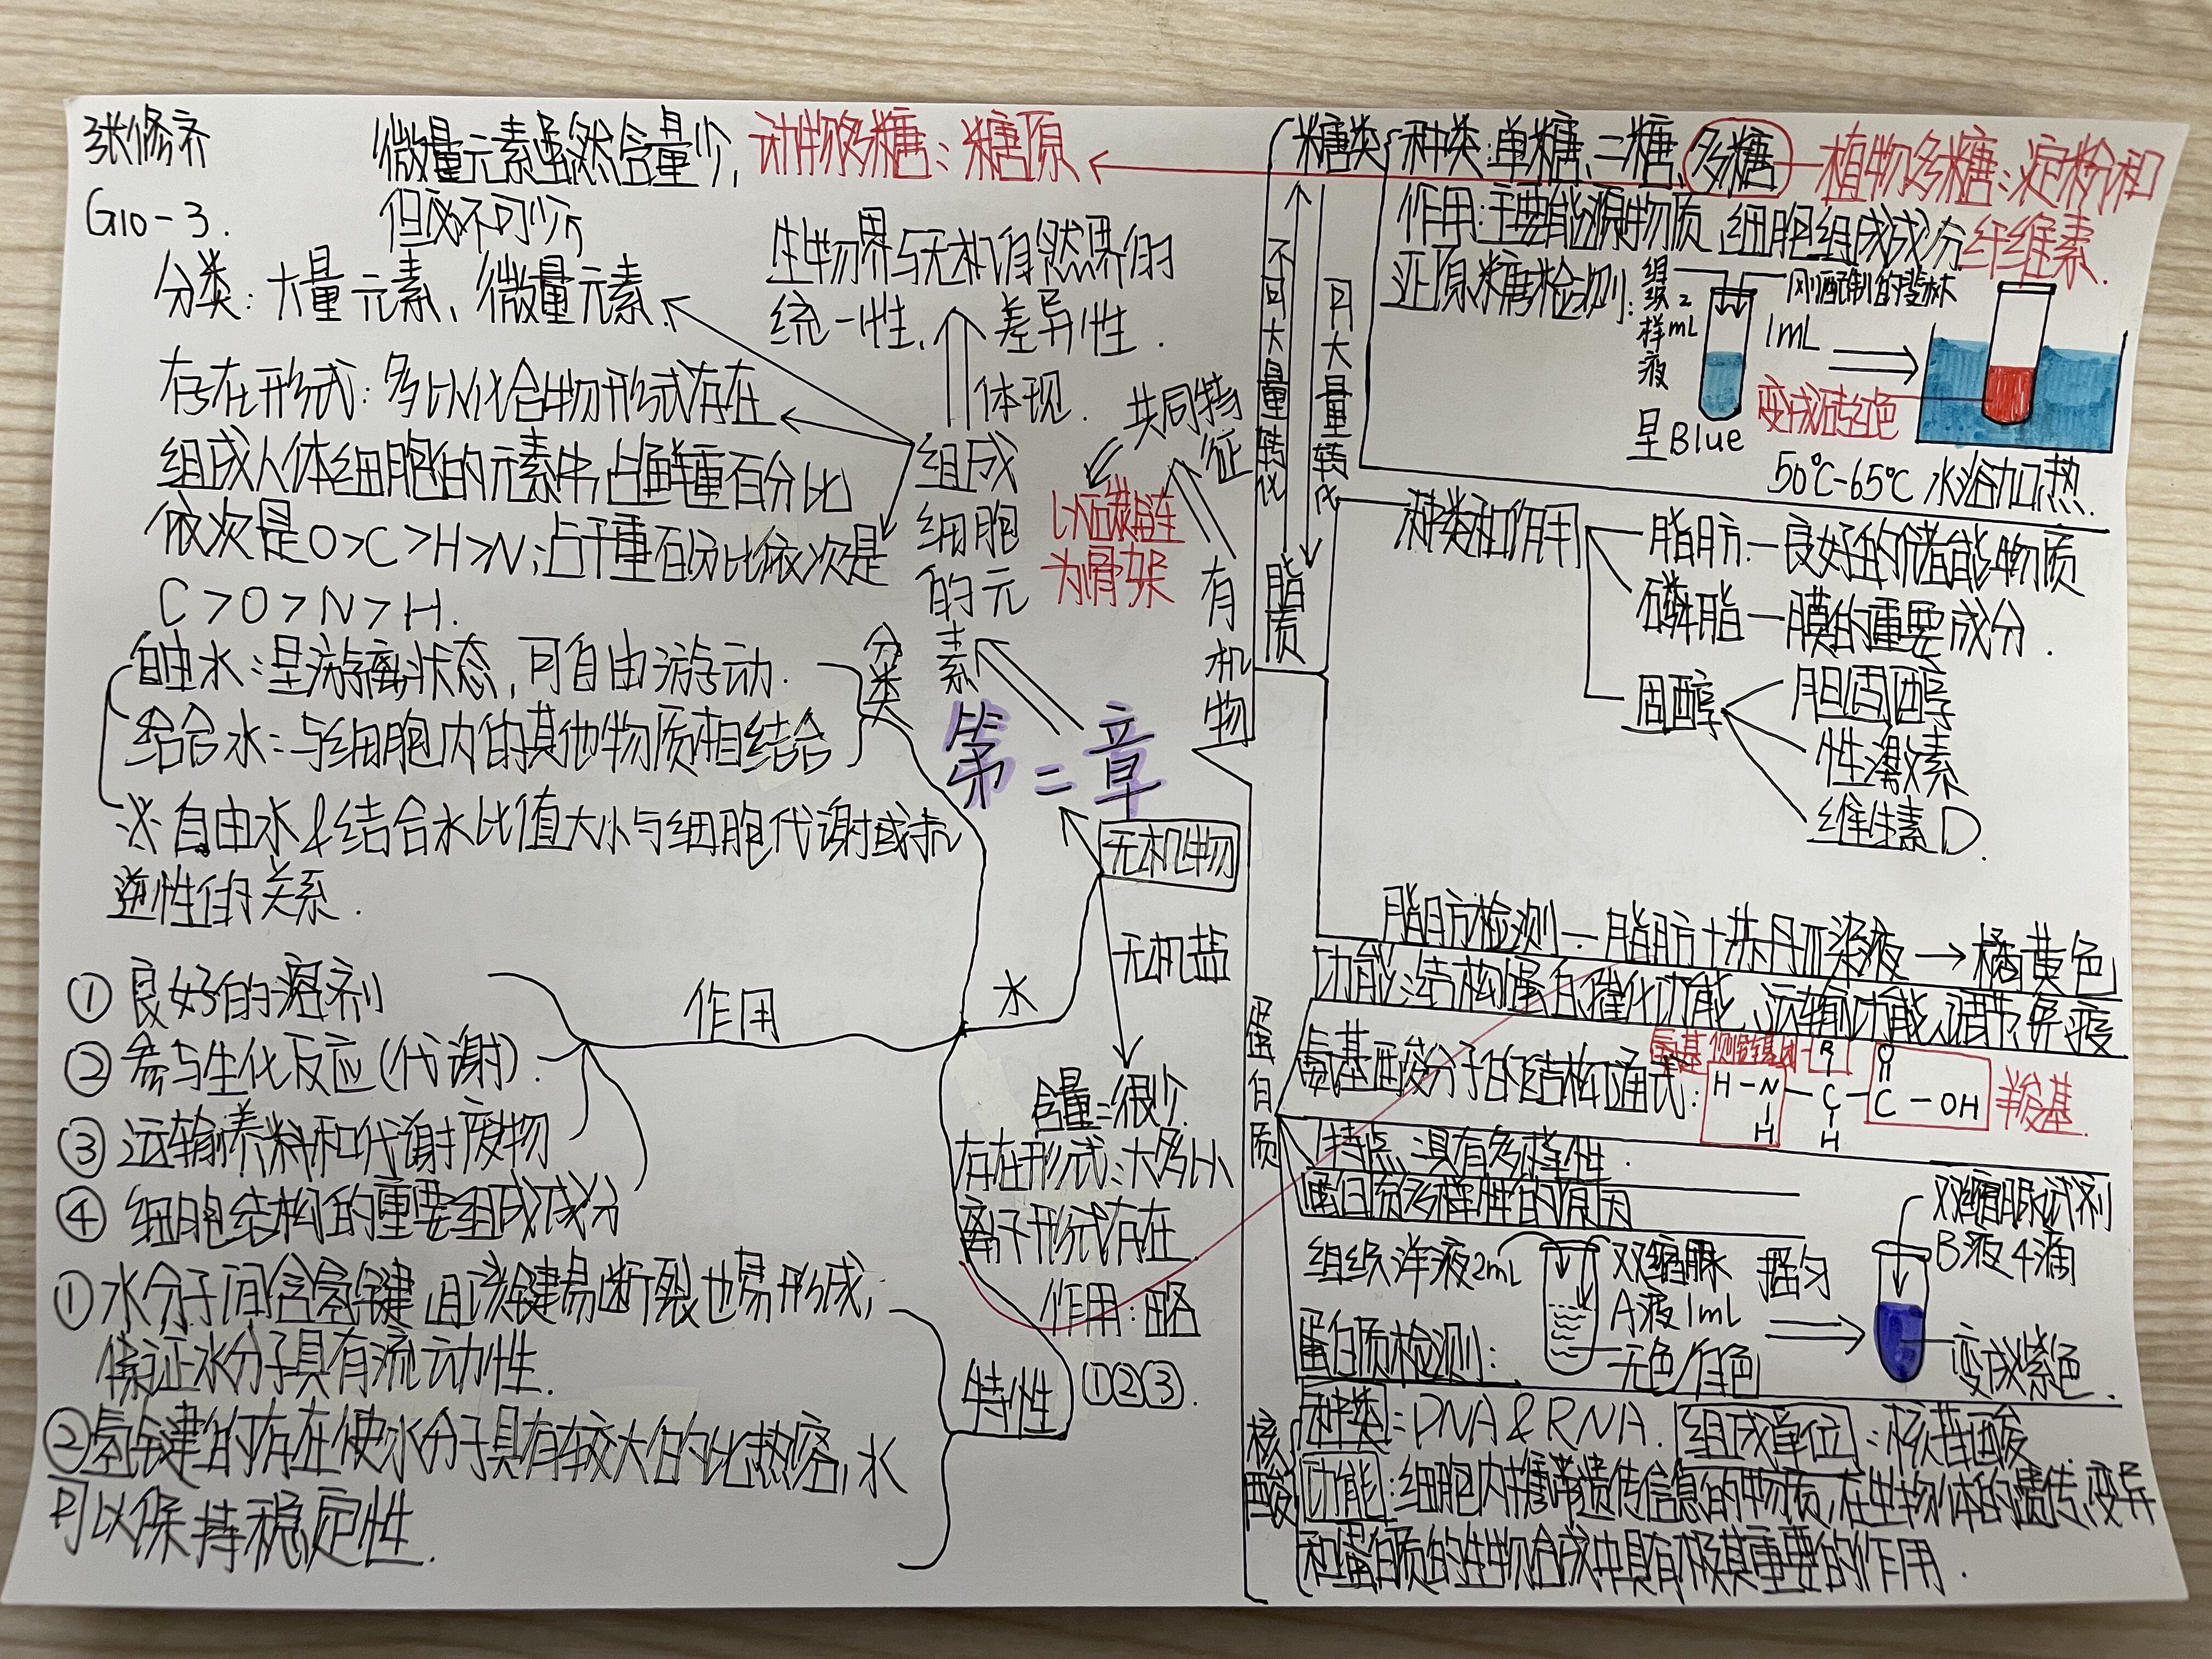 张修齐
G10-3.
微量元素虽然含量少,
但必不可少
分类: 大量元素、微量元素.
存在形式: 多以化合物形式存在
组成人体细胞的元素中,占鲜重百分比
依次是O>C>H>N;占干重百分比依次是
C>O>N>H.
动物多糖: 糖原
生物界与无机自然界的
统一性, 差异性.
体现.
组成
细胞
的元
素
共同特
征
以碳链
为骨架
有
机
物
第二章
自由水: 呈游离状态, 可自由游动.
结合水: 与细胞内的其他物质相结合
分
类
※ 自由水&结合水比值大小与细胞代谢或抗
逆性的关系.
① 良好的溶剂
② 参与生化反应(代谢).
③ 运输养料和代谢废物
④ 细胞结构的重要组成成分
作用
水
①水分子间含氢键,且该键易断裂也易形成,
保证水分子具有流动性.
②氢键的存在使水分子具有较大的比热容, 水
可以保持稳定性.
特性
无机物
无机盐
含量: 很少.
存在形式: 大多以
离子形式存在.
作用: 略
①②③.
糖类
不可大量转化
可大量转化
种类: 单糖、二糖、多糖
植物多糖: 淀粉和
纤维素.
作用: 主要能源物质、细胞组成成分
还原糖检测:
组织样液
2mL
刚配制的斐林
1mL
呈Blue
变成砖红色
50℃-65℃ 水浴加热.
脂
质
种类和作用
脂肪 — 良好的储能物质
磷脂 — 膜的重要成分.
固醇
胆固醇
性激素
维生素D.
脂肪检测 — 脂肪+苏丹Ⅲ染液 → 橘黄色
蛋白质
功能: 结构蛋白、催化功能、运输功能、调节、免疫
氨基酸分子的结构通式:
氨基
侧链基团
R
O
H-N-C-C-OH
H
H
羧基
特点: 具有多样性.
蛋白质多样性的原因
组织样液2mL
双缩脲
A液1mL
摇匀
双缩脲试剂
B液4滴
蛋白质检测:
无色/白色
变成紫色.
核
酸
种类: DNA & RNA. 组成单位: 核苷酸
功能: 细胞内携带遗传信息的物质,在生物体的遗传、变异
和蛋白质的生物合成中具有极其重要的作用.